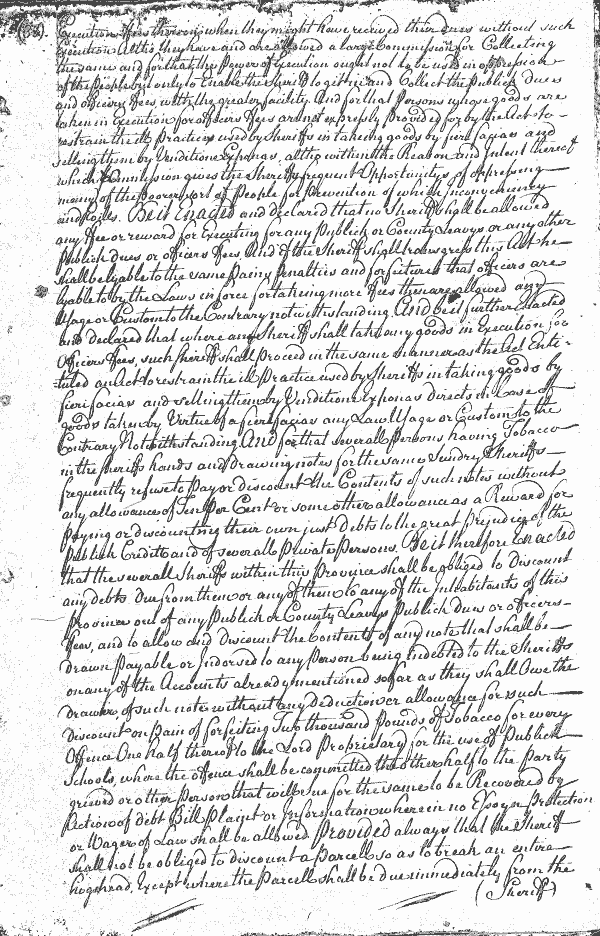 Execution ffees thereon, when they might have received their dues without such
Execution Altho they have and are allowed a large Commission for Collecting
the same and for that the Power of Execution ought not to be used in oppression
of the People but only to Enable the Sheriff to gitt in and Collect the Publick dues
and officers ffees, with the greater facility. And for that Persons whose goods are
taken in Execution for officers ffees are not expressly Provided for by the Act to
restrain the ill Practices used by Sheriffs in taking goods by fieri facias and
selling them by Venditioni Exponas, altho within the Reason and Intent thereof
which Commission gives the Sheriffs frequent Opportunitys of oppressing
many of the poorer sort of People for Prevention of which Inconveniency
and toils. Be it Enacted and declared that no Sheriff shall be allowed
any ffee or reward for Executing for any Publick or County Leavys or any other
Publick dues or officers ffees. And if the Sheriff shall transgress this Act he
shall be lyable to the same Pains Penalties and forfeitures that officers are
lyable to by the Laws in force for taking more ffees then are allowed any
Usage or Custom to the Contrary notwithstanding. And be it further Enacted
and declared that where any Sheriff shall take any goods in Execution for
Officers ffees, such sheriff shall Proceed in the same manner as the Act Enti-
tuled an Act to restrain the ill Practice used by Sheriffs in taking goods by
fieri facias and selling them by Venditioni Exponas directs in Case of
goods taken by Virtue of a fieri facias any Law Usage or Custom to the
Contrary Notwithstanding And for that severall Persons having Tobacco
in the sheriffs hands and drawing notes for the same Sundry Sheriffs
frequently refuse to Pay or discount the Contents of such notes without
any allowance of Ten Per Cent or some other allowance as a Reward for
Paying or discounting their own just Debts to the great prejudice of the
Publick Credit and of severall Private Persons. Be it therefore Enacted
that the severall Sheriffs within this Province shall be obliged to Discount
any debts Due from them or any of them to any of the Inhabitants of this
Province out of any Publick or County Leavys Publick Dues or officers
ffees, and to allow and Discount the Contents of any note that shall be
drawn Payable or Indorsed to any Person being indebted to the Sheriffs
on any of the Accounts already mentioned so far as they shall Owe the
drawer of such note without any deduction or allowance for such
Discount on Pain of forfeiting Two thousand Pounds of Tobacco for every
Offence One half thereof to the Lord Proprietary for the use of Publick
Schools, where the offence shall be committed the other half to the Party
grieved or other Person that will sue for the same to be Recovered by
Action of debt Bill Plaint or Information wherein no Essoyn Protection
or Wager of Law shall be allowed Provided always that the Sheriff
shall not be obliged to discount a Parcell so as to break an entire
hogshead, Except where the Parcell shall be due immediately from the
(Sheriff)